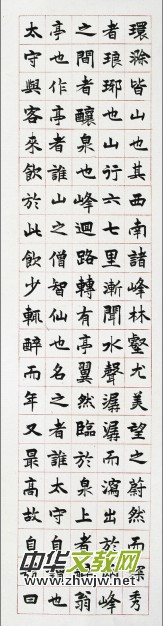 環滁皆山也其西南諸峰林壑尤美望之蔚然而深秀
者琅琊也山行六七里漸聞水聲潺潺而瀉出於兩峰
之間者釀泉也峰迴路轉有亭翼然臨於泉上者醉翁
亭也作亭者誰山之僧智仙也名之者誰太守自謂也
太守與客來飲於此飲少輒醉而年又最高故自號曰
中华文教网
www.zhwjw.net